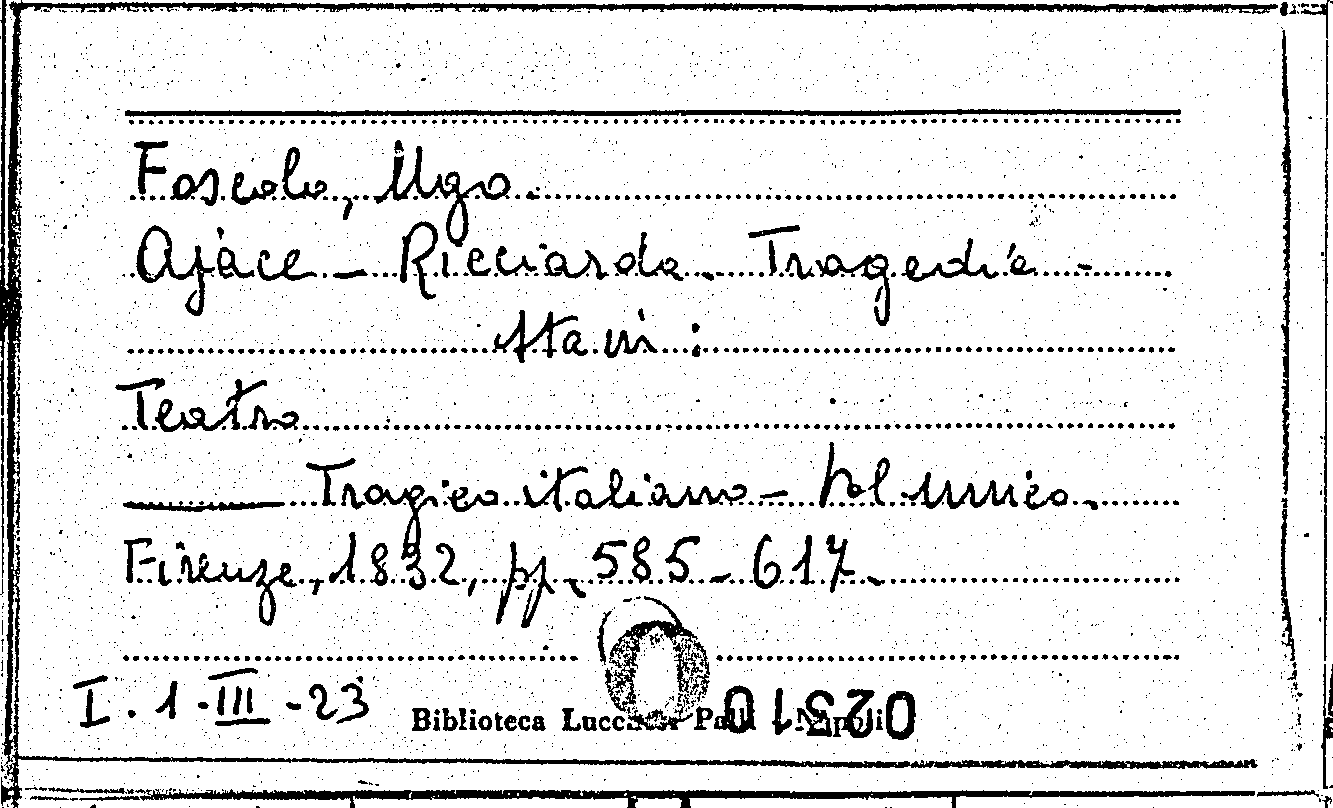 Foscolo, Ugo.
Ajace – Ricciarda. Tragedie -
Teatro
Tragico italiano – Vol. unico.
Firenze, 1832, pp. 585 – 617.
I. 1. III - 23
Biblioteca Lucchesi Palli Napoli
02310